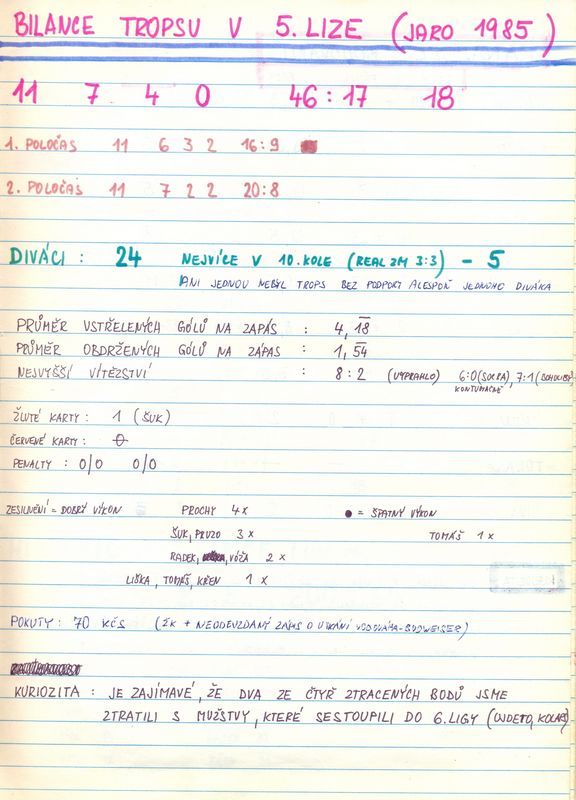 BILANCE TROPSU V 5. LIZE (JARO 1985)
11 7 4 0 46:17 18
1. POLOČAS 11 6 3 2 16:9
2. POLOČAS 11 7 2 2 20:8
DIVÁCI: 24 NEJVÍCE V 10. KOLE (REAL ZM 3:3) - 5
ANI JEDNOU NEBYL TROPS BEZ PODPORY ALESPOŇ JEDNOHO DIVÁKA
PRŮMĚR VSTŘELENÝCH GÓLŮ NA ZAPÁS : 4,18
PRŮMĚR OBDRŽENÝCH GÓLŮ NA ZÁPAS : 1,54
NEJVYŠŠÍ VÍTĚZSTVÍ : 8:2 (VYPRAHLO) 6:0 (SOKRA), 7:1
KONTUMAČNĚ
ŽLUTÉ KARTY: 1 (ŠUK)
ČERVENÉ KARTY: 0
PENALTY : 0/0 0/0
ZESÍLNĚNÍ = DOBRÝ VÝKON PROCHY 4x ● = ŠPATNÝ VÝKON
ŠUK, PRUZO 3x TOMÁŠ 1x
RADEK, VÓŽA 2x
LIŠKA, TOMÁŠ, KŘEN 1x
POKUTY: 70 KČS (ŽK + NEODEVZDANÝ ZÁPAS O UTKÁNÍ VODOLÁMA-BUDWEISER)
KURIOZITA : JE ZAJÍMAVÉ, ŽE DVA ZE ČTYŘ ZTRACENÝCH BODŮ JSME
ZTRATILI S MUŽSTVY, KTERÉ SESTOUPILI DO 6. LIGY (OJDETO, KOLAPS)